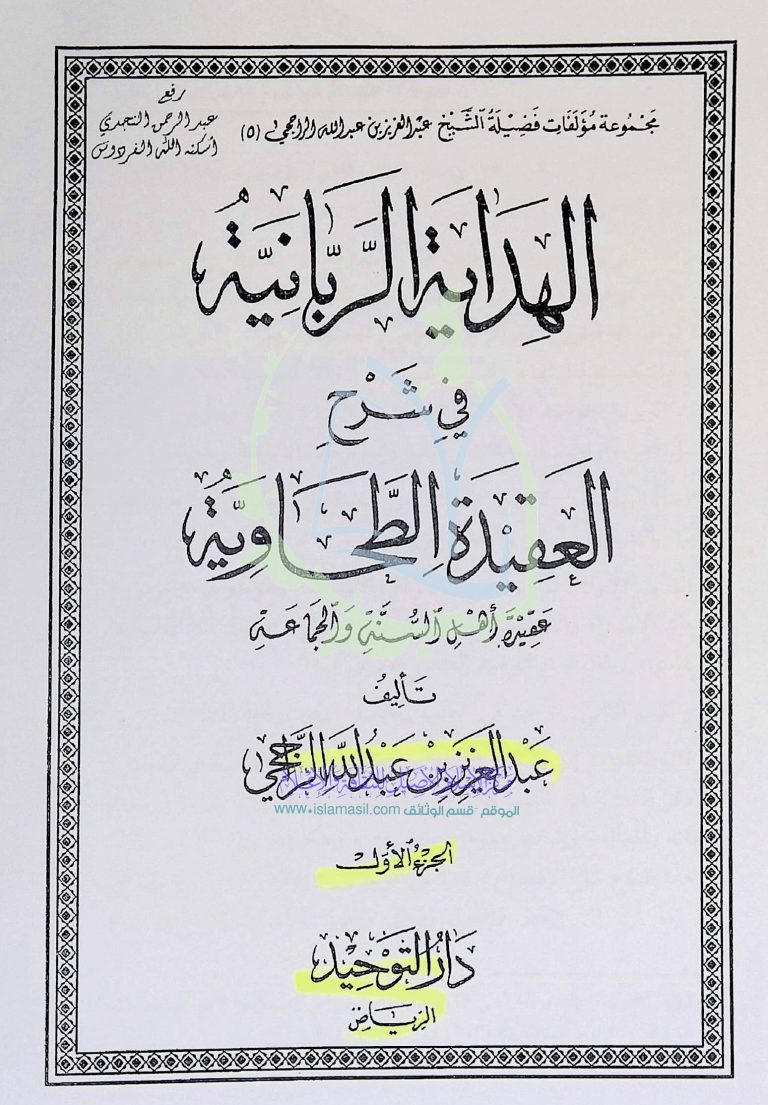 رفع
عبد الرحمن النجدي
أسكنه الله الفردوس
مَجْمُوعَة مُؤَلَّفَات فَضِيلَةُ الشَّيْخ عَبْد العَزِيز بن عَبد الله الراجحي (٥)
الهِدَايَة الرَّبَّانِيَّةُ
فِي شَرْحِ
العَقِيْدَة الِطَّحَاوِيَّةُ
عَقِيْدَة أَهْلِ السُّنَّةِ وَالجَمَاعَةِ
تَأليفُ
عَبْدِ العَزِيزِ بْنِ عَبْدِ اللهِ الرَّاجِحِيِّ
الموقع - قسم الوثائق www.islamasil.com
الجزء الأوّل
دَارُ التَّوْحِيْدِ
الرِّيَاضِ